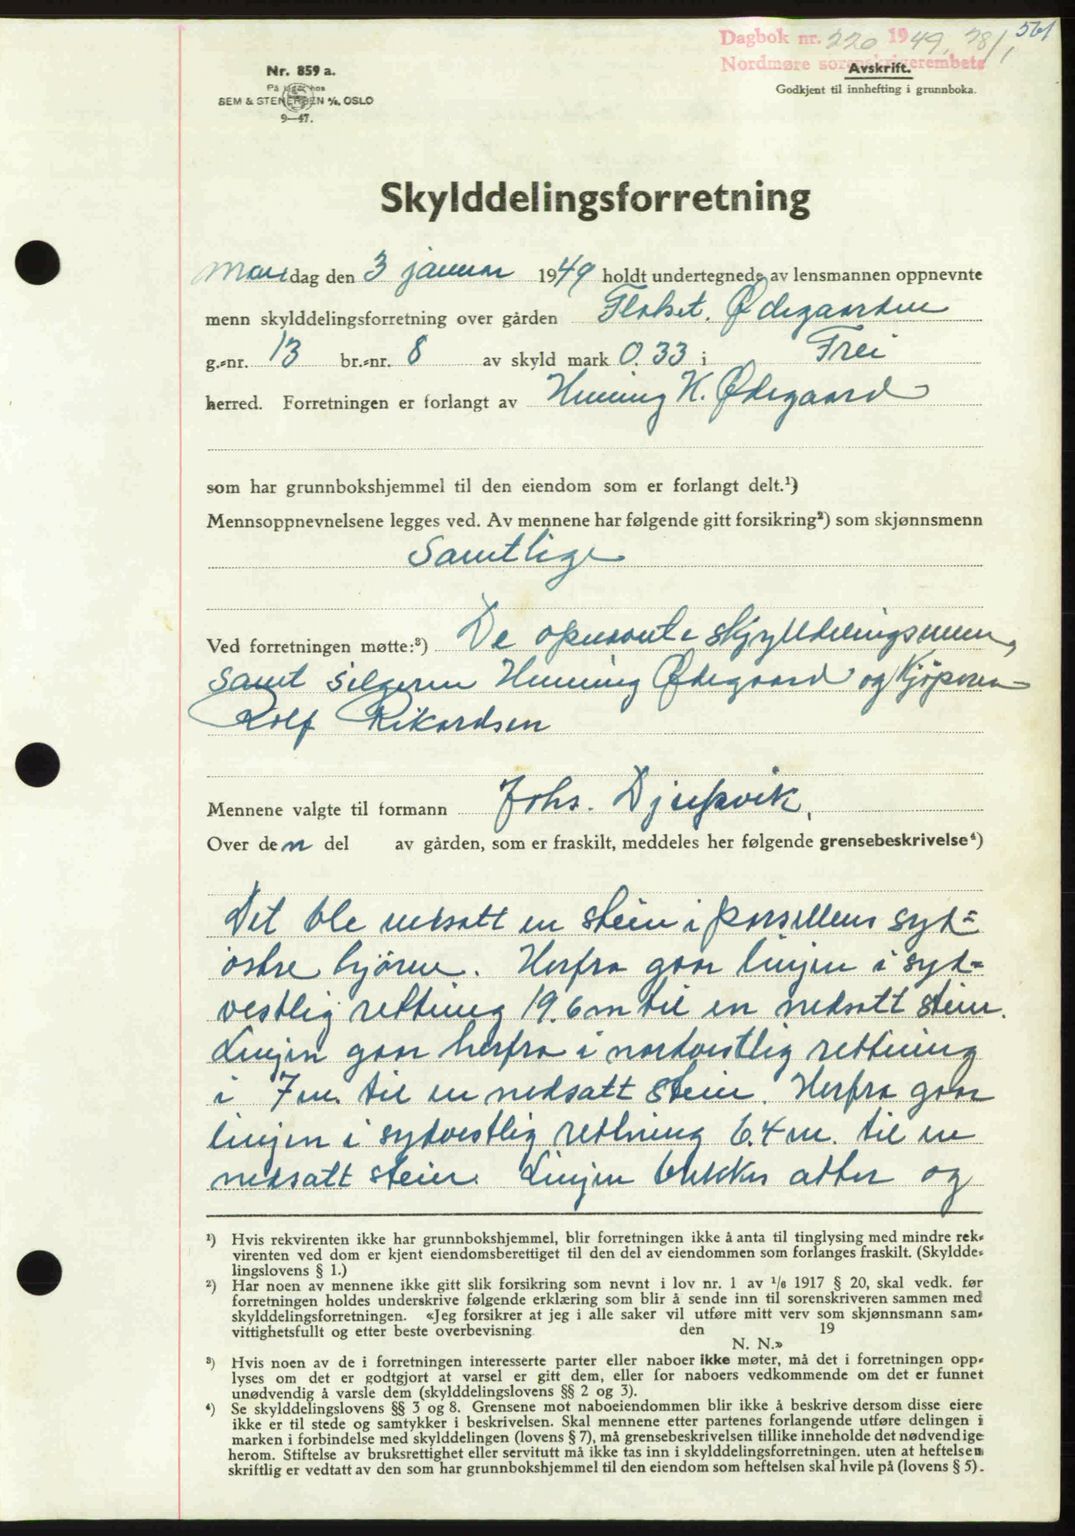 561
Dagbok nr. 220 1949, 28/1
Nordmøre sorenskriverembete
Avskrift.
Godkjent til innhefting i grunnboka.
Nr. 859 a.
På lager hos
SEM & STENERSEN A/S, OSLO
9—47.
Skylddelingsforretning
Mandag den 3 januar 1949 holdt undertegnede av lensmannen oppnevnte
menn skylddelingsforretning over gården Flatset, Ødegaarden
g.-nr. 13 br.-nr. 8 av skyld mark 0.33 i Frei
herred. Forretningen er forlangt av Henning K. Ødegaard
som har grunnbokshjemmel til den eiendom som er forlangt delt.¹)
Mennsoppnevnelsene legges ved. Av mennene har følgende gitt forsikring²) som skjønnsmenn
Samtlige
Ved forretningen møtte:³) De opnevnte skjylddelingsmenn,
samt selgeren Henning Ødegaard og kjøperen
Rolf Rikardsen
Mennene valgte til formann Johs. Djupvik,
Over den del av gården, som er fraskilt, meddeles her følgende grensebeskrivelse⁴)
Det ble nedsatt en stein i parsellens syd-
østre hjørne. Herfra gaar linjen i syd-
vestlig rettning 19.6m til en nedsatt stein.
Linjen gaar herfra i nordvestlig rettning
i 7m. til en nedsatt stein. Herfra gaar
linjen i sydvestlig rettning 6.4m. til en
nedsatt stein. Linjen bukker atter og
¹) Hvis rekvirenten ikke har grunnbokshjemmel, blir forretningen ikke å anta til tinglysing med mindre rek-
virenten ved dom er kjent eiendomsberettiget til den del av eiendommen som forlanges fraskilt. (Skyldde-
lingslovens § 1.)
²) Har noen av mennene ikke gitt slik forsikring som nevnt i lov nr. 1 av ¹/₆ 1917 § 20, skal vedk. før
forretningen holdes underskrive følgende erklæring som blir å sende inn til sorenskriveren sammen med
skylddelingsforretningen. «Jeg forsikrer at jeg i alle saker vil utføre mitt verv som skjønnsmann sam-
vittighetsfullt og etter beste overbevisning den 19
N. N.»
³) Hvis noen av de i forretningen interesserte parter eller naboer ikke møter, må det i forretningen opp-
lyses om det er godtgjort at varsel er gitt dem, eller for naboers vedkommende om det er funnet
unødvendig å varsle dem (skylddelingslovens §§ 2 og 3).
⁴) Se skylddelingslovens §§ 3 og 8. Grensene mot naboeiendommen blir ikke å beskrive dersom disse eiere
ikke er til stede og samtykker i beskrivelsen. Skal mennene etter partenes forlangende utføre delingen i
marken i forbindelse med skylddelingen (lovens § 7), må grensebeskrivelsen tillike inneholde det nødvendige
herom. Stiftelse av bruksrettighet eller servitutt må ikke tas inn i skylddelingsforretningen, uten at heftelsen
skriftlig er vedtatt av den som har grunnbokshjemmel til den eiendom som heftelsen skal hvile på (lovens § 5).